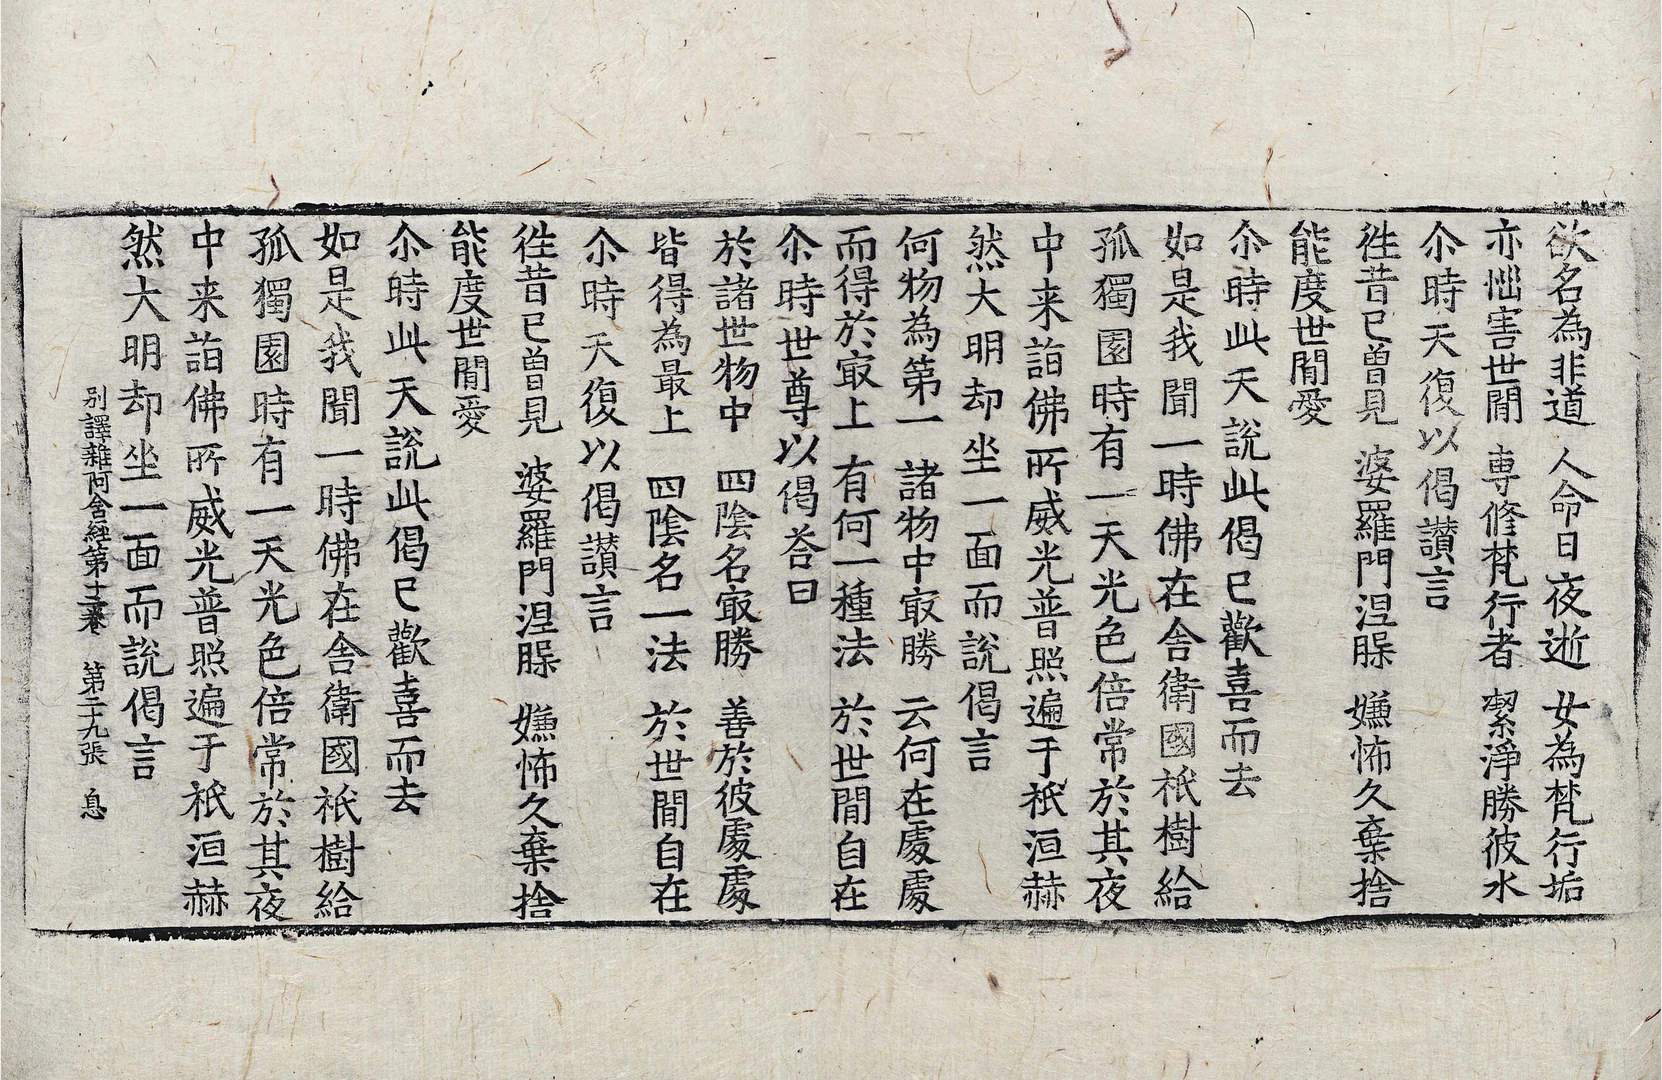 欲名為非道 人命日夜逝 女為梵行垢
亦惱害世間 專修梵行者 潔淨勝彼水
尒時天復以偈讚言
徃昔已曾見 婆羅門涅槃 嫌怖久棄捨
能度世閒愛
尒時此天說此偈已歡喜而去
如是我聞一時佛在舍衛國祇樹給
孤獨園時有一天光色倍常於其夜
中来詣佛所威光普照遍于祇洹赫
然大明却坐一面而說偈言
何物為第一 諸物中㝡勝 云何在處處
而得於㝡上 有何一種法 於世間自在
尒時世尊以偈荅曰
於諸世物中 四陰名㝡勝 善於彼處處
皆得為最上 四陰名一法 於世間自在
尒時天復以偈讚言
徃昔已曾見 婆羅門涅槃 嫌怖久棄捨
能度世閒愛
尒時此天說此偈已歡喜而去
如是我聞一時佛在舍衛國祇樹給
孤獨園時有一天光色倍常於其夜
中来詣佛所威光普照遍于祇洹赫
然大明却坐一面而說偈言
別譯雜阿含經第十二卷 第二十九張 息